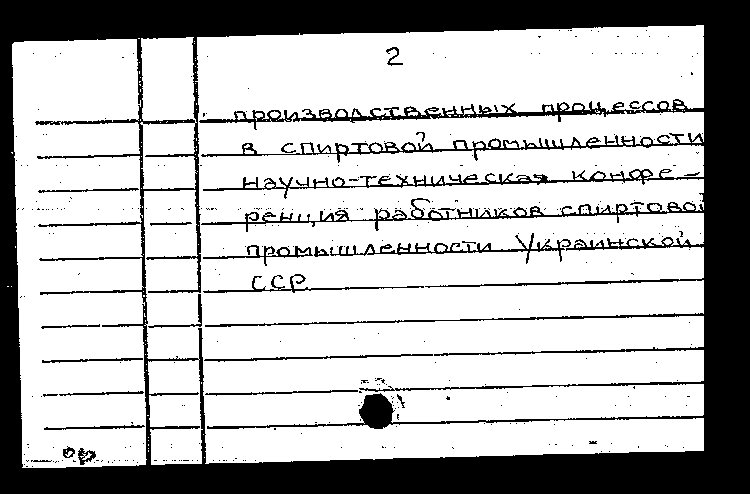 2
производственных процессов
в спиртовой промышленности
научно-техническая конфе-
ренция работников спиртовой
промышленности Украинской
ССР